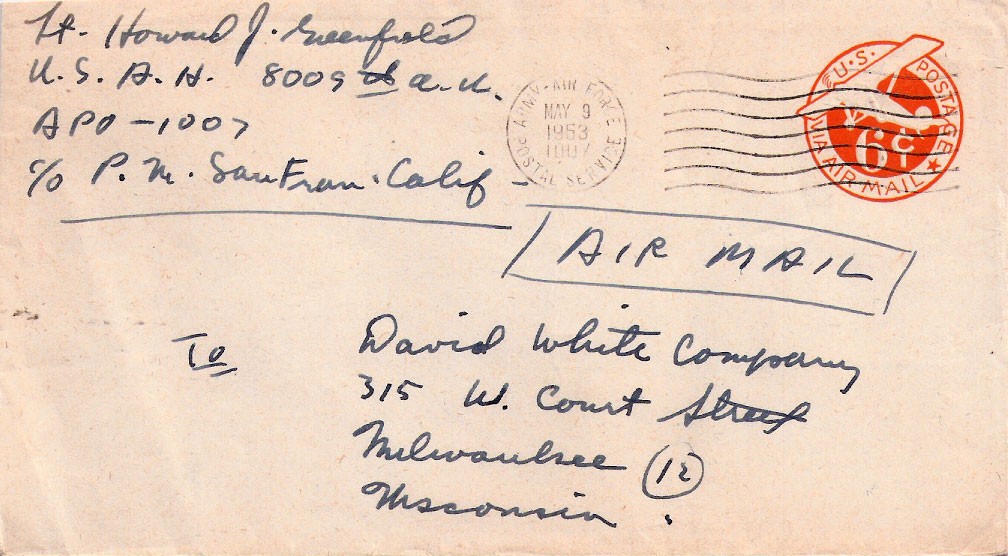 Lt. Howard J. Greenfield
U.S.A.H. 8009th a.u.
APO-1007
c/o P.M. San Fran. Calif -
ARMY-AIR FORCE
MAY 9
1953
1007
POSTAL SERVICE
U.S. POSTAGE
6¢
VIA AIR MAIL
AIR MAIL
To
David White Company
315 W. Court Street
Milwaukee (12)
Wisconsin.